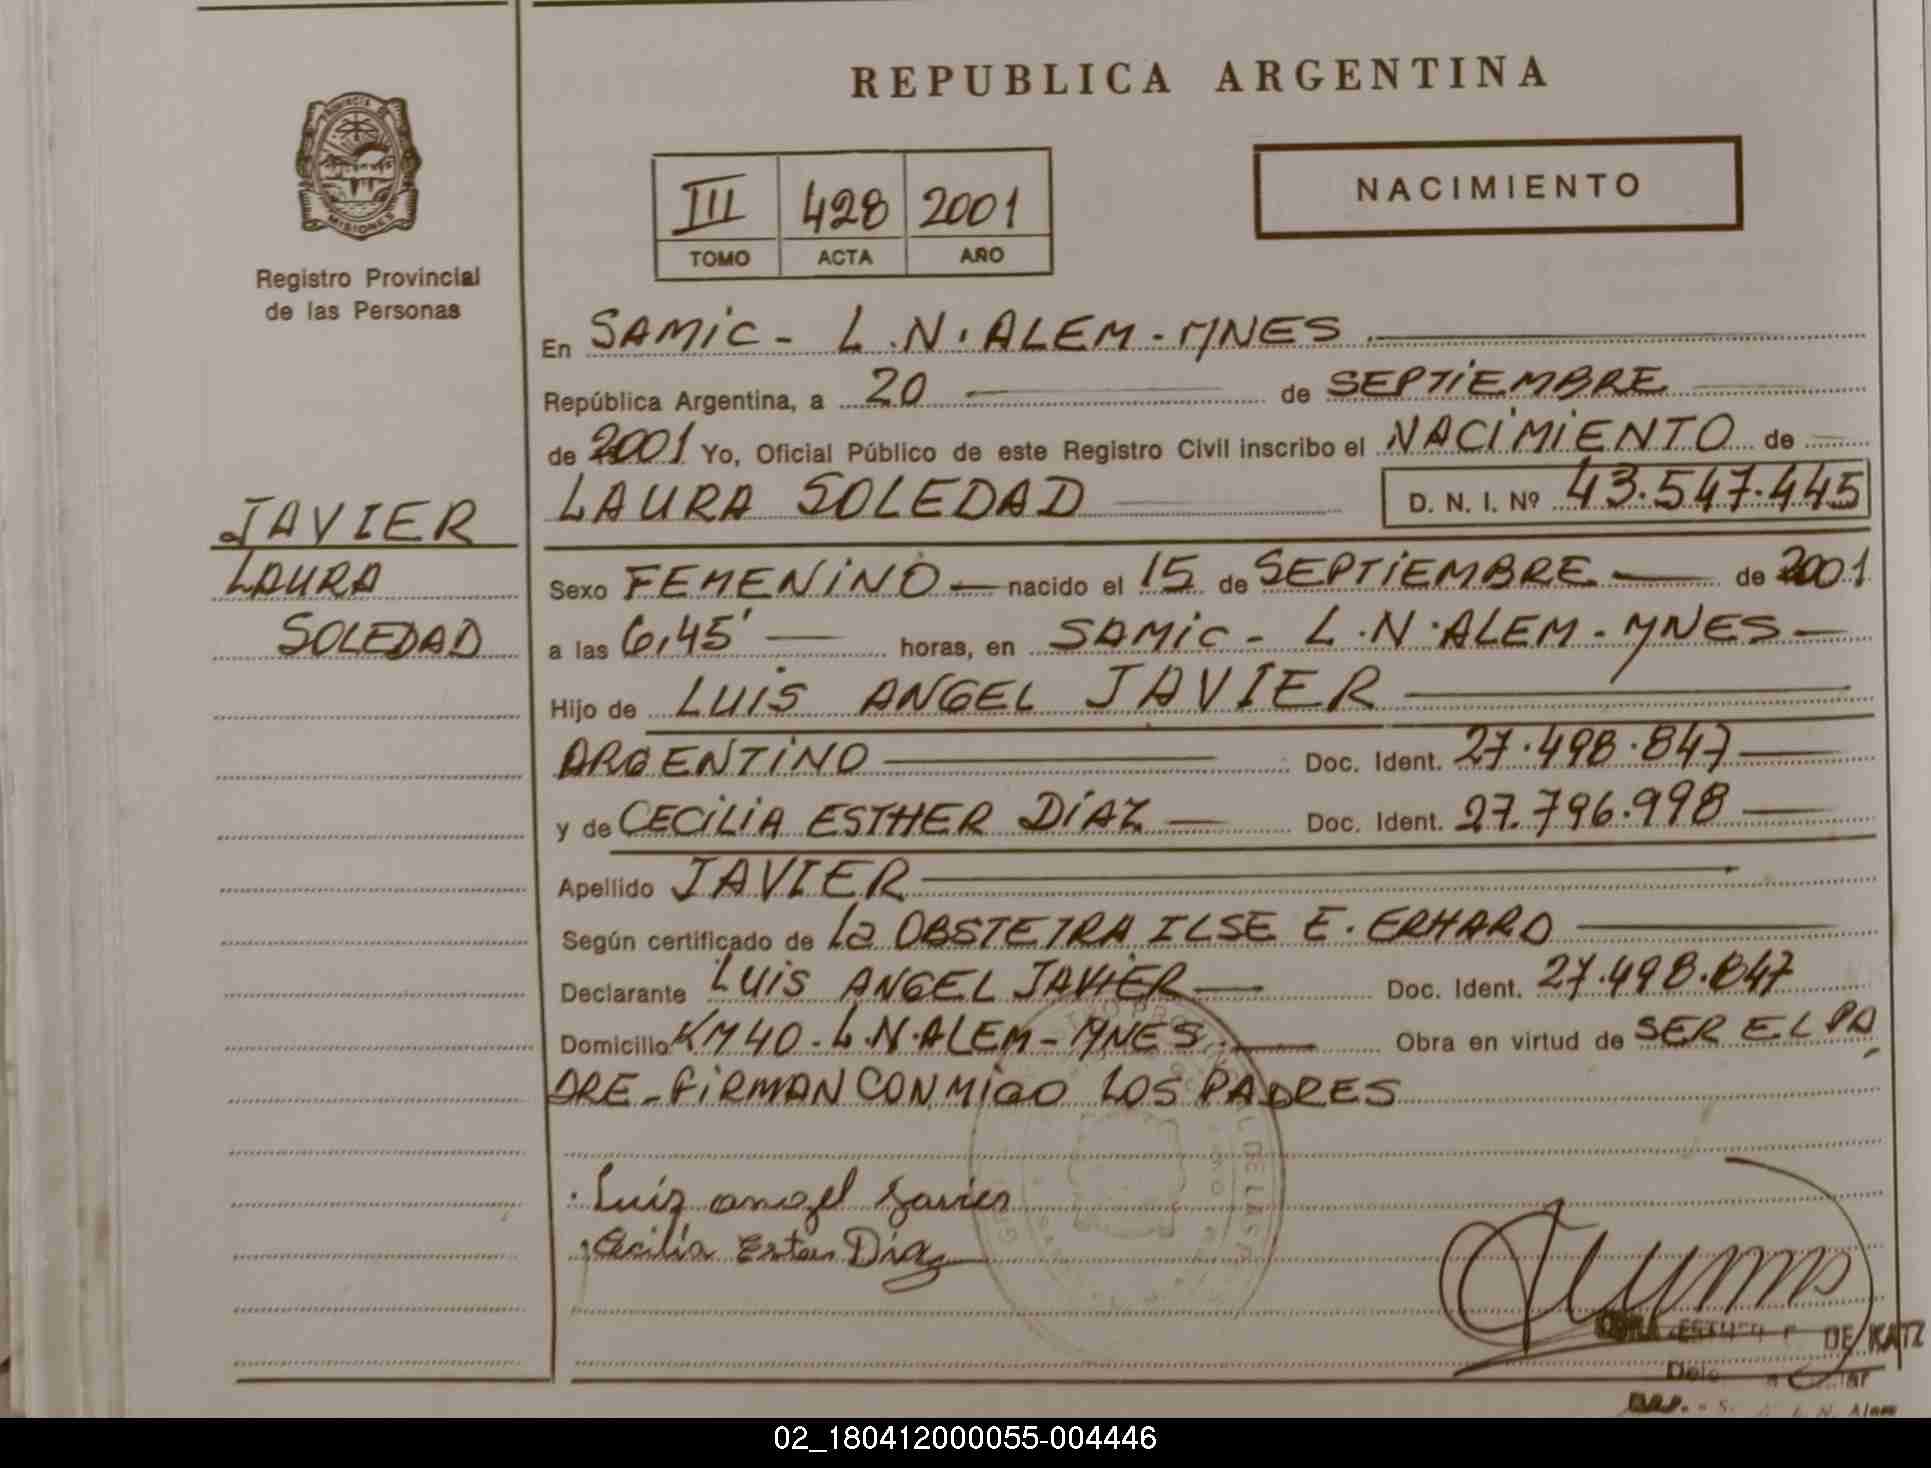 REPUBLICA ARGENTINA
PROVINCIA DE
MISIONES
Registro Provincial
de las Personas
III 428 2001
TOMO ACTA AÑO
NACIMIENTO
En SAMIC - L.N.ALEM - MNES
República Argentina, a 20 de SEPTIEMBRE
de 2001 Yo, Oficial Público de este Registro Civil inscribo el NACIMIENTO de
LAURA SOLEDAD D. N. I. Nº 43.547.445
JAVIER
LAURA
SOLEDAD
Sexo FEMENINO nacido el 15 de SEPTIEMBRE de 2001
a las 6,45' horas, en SAMIC - L.N.ALEM - MNES
Hijo de LUIS ANGEL JAVIER
ARGENTINO Doc. Ident. 27.498.847
y de CECILIA ESTHER DÍAZ Doc. Ident. 27.796.998
Apellido JAVIER
Según certificado de La OBSTETRA ILSE E. ERHARD
Declarante LUIS ANGEL JAVIER Doc. Ident. 27.498.847
Domicilio KM 40 - L.N.ALEM - MNES Obra en virtud de SER EL PA
DRE - FIRMAN CONMIGO LOS PADRES
Luiz angel Javier
Cecilia Ester Díaz
DE KATZ
L. N. Alem
02_180412000055-004446